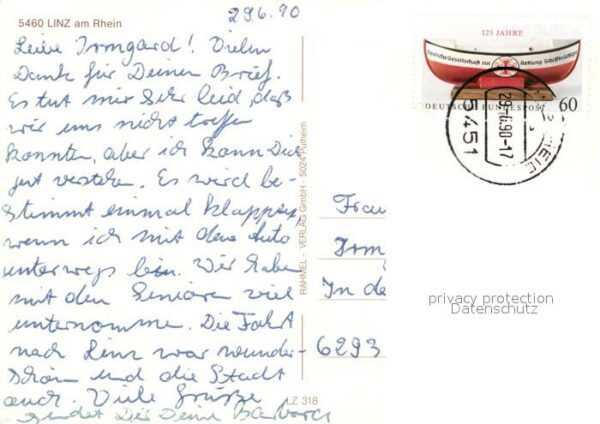 29.6.90
5460 LINZ am Rhein
Liebe Irmgard! Vielen
Dank für Deinen Brief.
Es tut mir sehr leid, daß
wir uns nicht treffen
konnten, aber ich kann Dich
gut verstehen. Es wird be-
stimmt einmal klappen,
wenn ich mit dem Auto
unterwegs bin. Wir haben
mit den Senioren viel
unternommen. Die Fahrt
nach Linz war wunder-
schön und die Stadt
auch. Viele Grüße
sendet Dir Deine Barbara
RAHMEL - VERLAG GmbH · 5024 Pulheim
LZ 318
125 JAHRE
Deutsche Gesellschaft zur Rettung Schiffbrüchiger
DEUTSCHE BUNDESPOST 60
29.-6.90-17
5451
Frau
Irm
In de
6293
privacy protection
Datenschutz